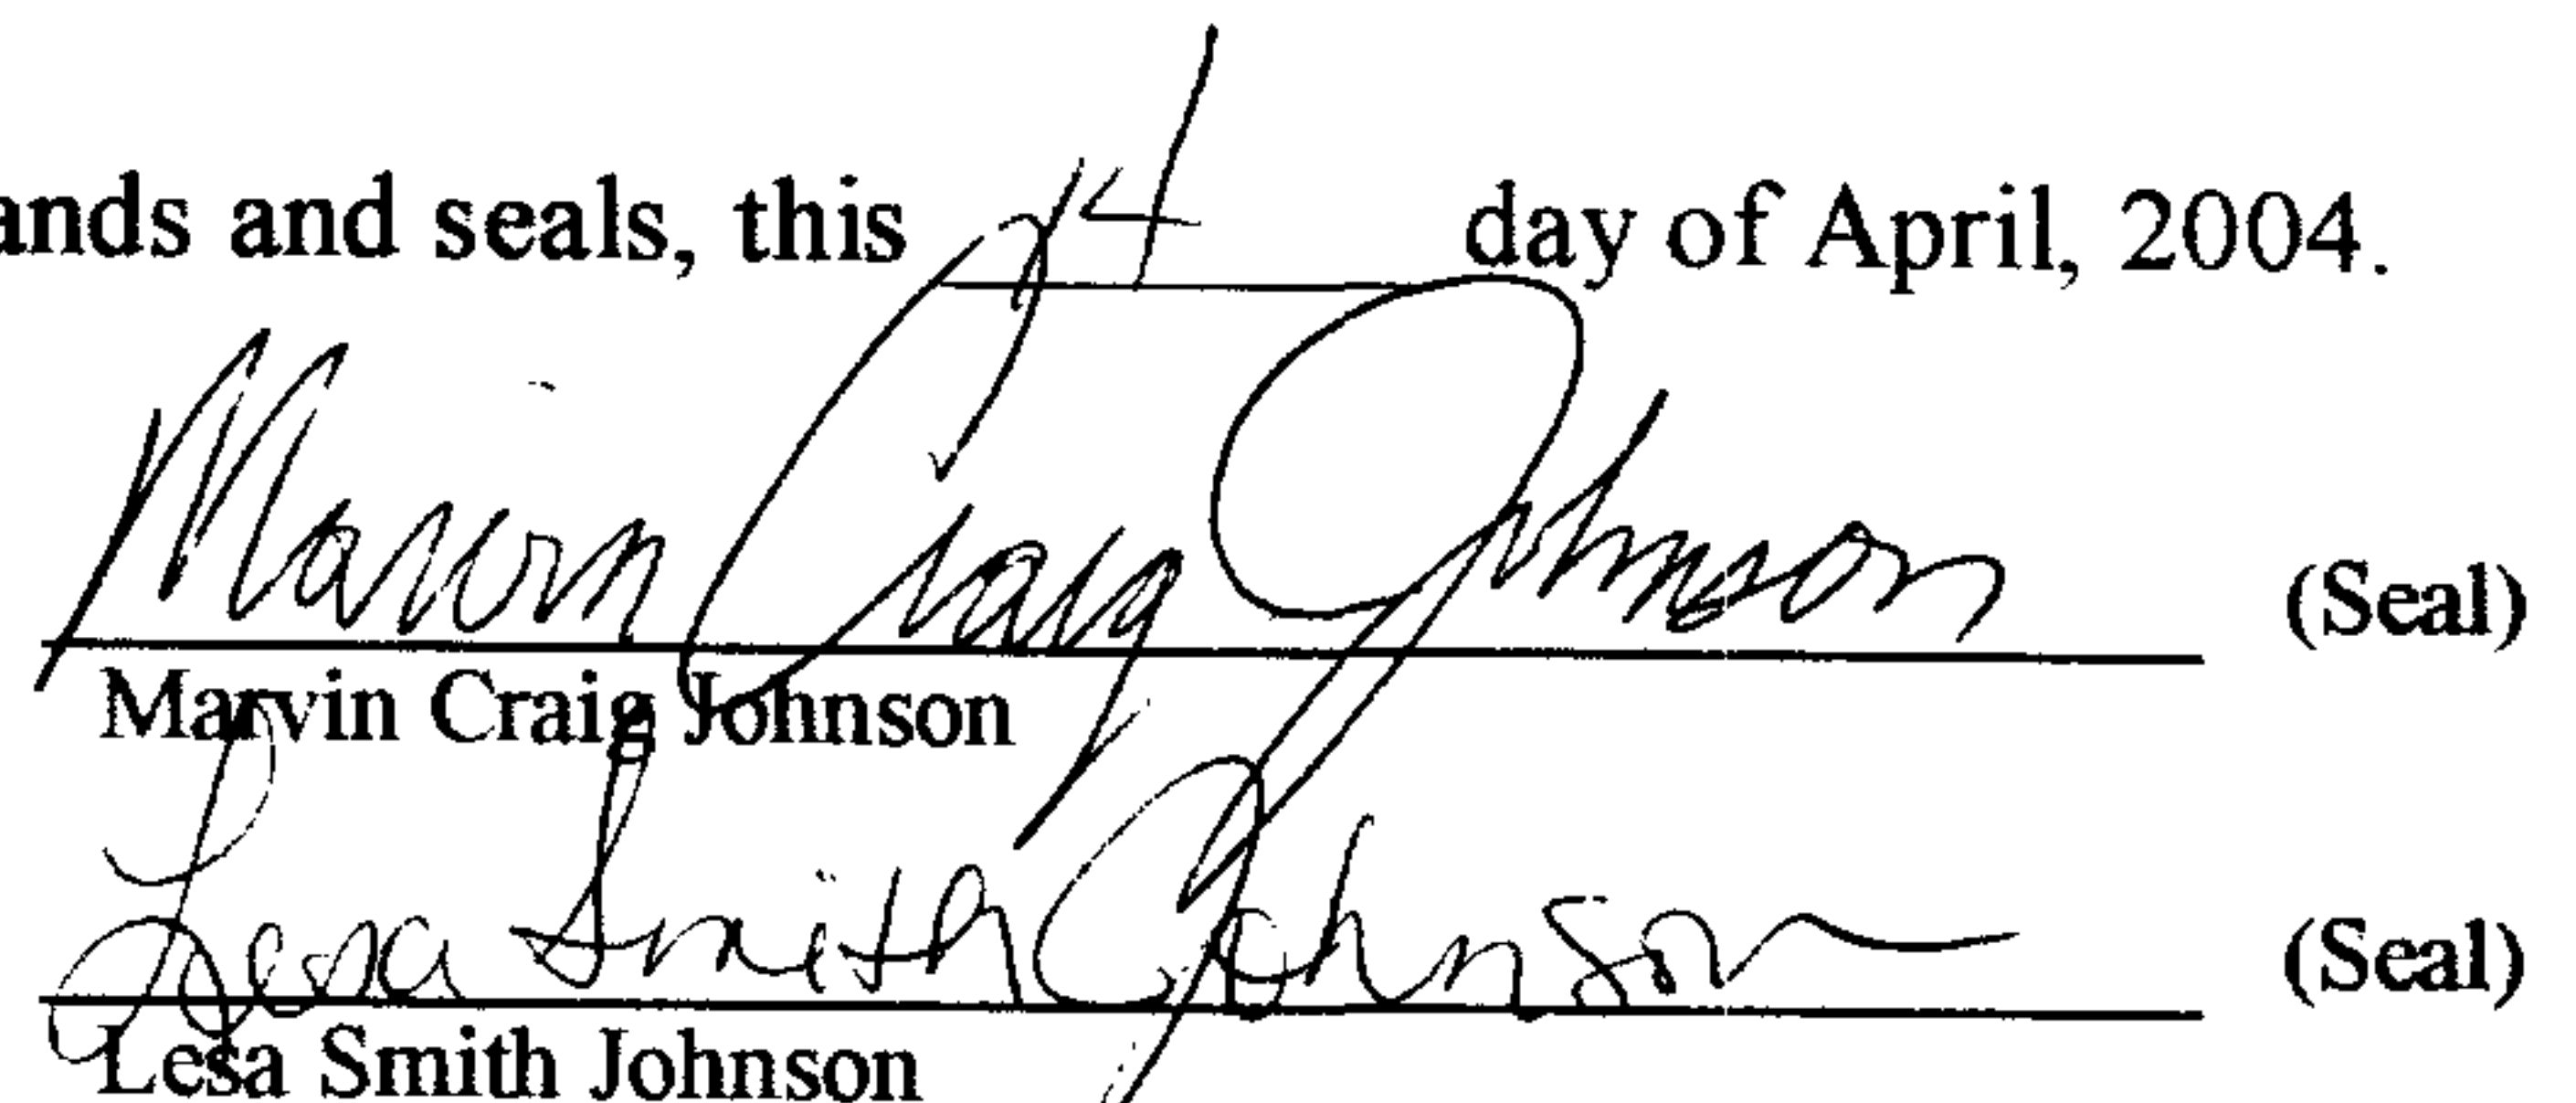 ands and seals, this day of April, 2004.
Marvin Craig Johnson (Seal)
Marvin Craig Johnson
Lesa Smith Johnson (Seal)
Lesa Smith Johnson